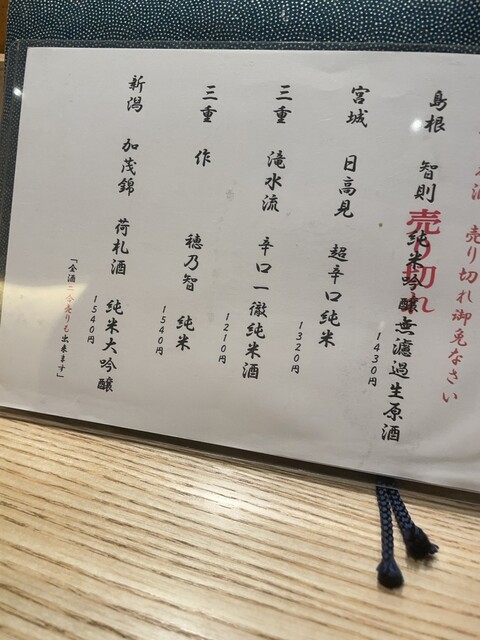 売り切れ御免なさい
島根 智則 純米吟醸無濾過生原酒
1430円
売り切れ
宮城 日高見 超辛口純米
1320円
三重 滝水流 辛口一徹純米酒
1210円
三重 作 穂乃智 純米
1540円
新潟 加茂錦 荷札酒 純米大吟醸
1540円
「全酒二合売りも出来ます」